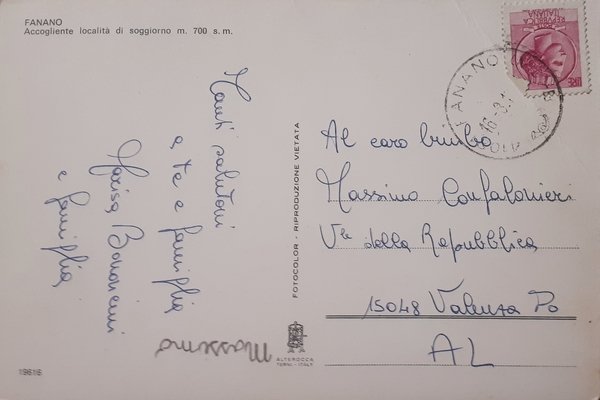 FANANO
Accogliente località di soggiorno m. 700 s. m.
Tanti salutoni
a te e famiglia
Marisa Bononcini
e famiglia
Massimo
FOTOCOLOR - RIPRODUZIONE VIETATA
REPUBBLICA
ITALIANA
FANANO
16
Al caro bimbo
Massimo Confalonieri
Vle della Repubblica
15048 Valenza Po
AL
ALTEROCCA
TERNI - ITALY
19616